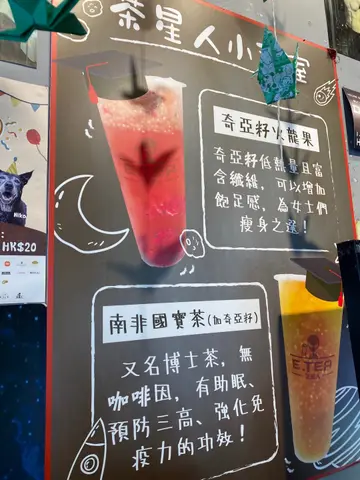 茶星人小
屋
奇亞籽火龍果
奇亞籽低熱量且富
含纖維，可以增加
飽足感，為女士們
瘦身之選！
HK$20
南非國寶茶(加奇亞籽)
又名博士茶，無
咖啡因，有助眠、
預防三高、強化免
疫力的功效！
E.TEA